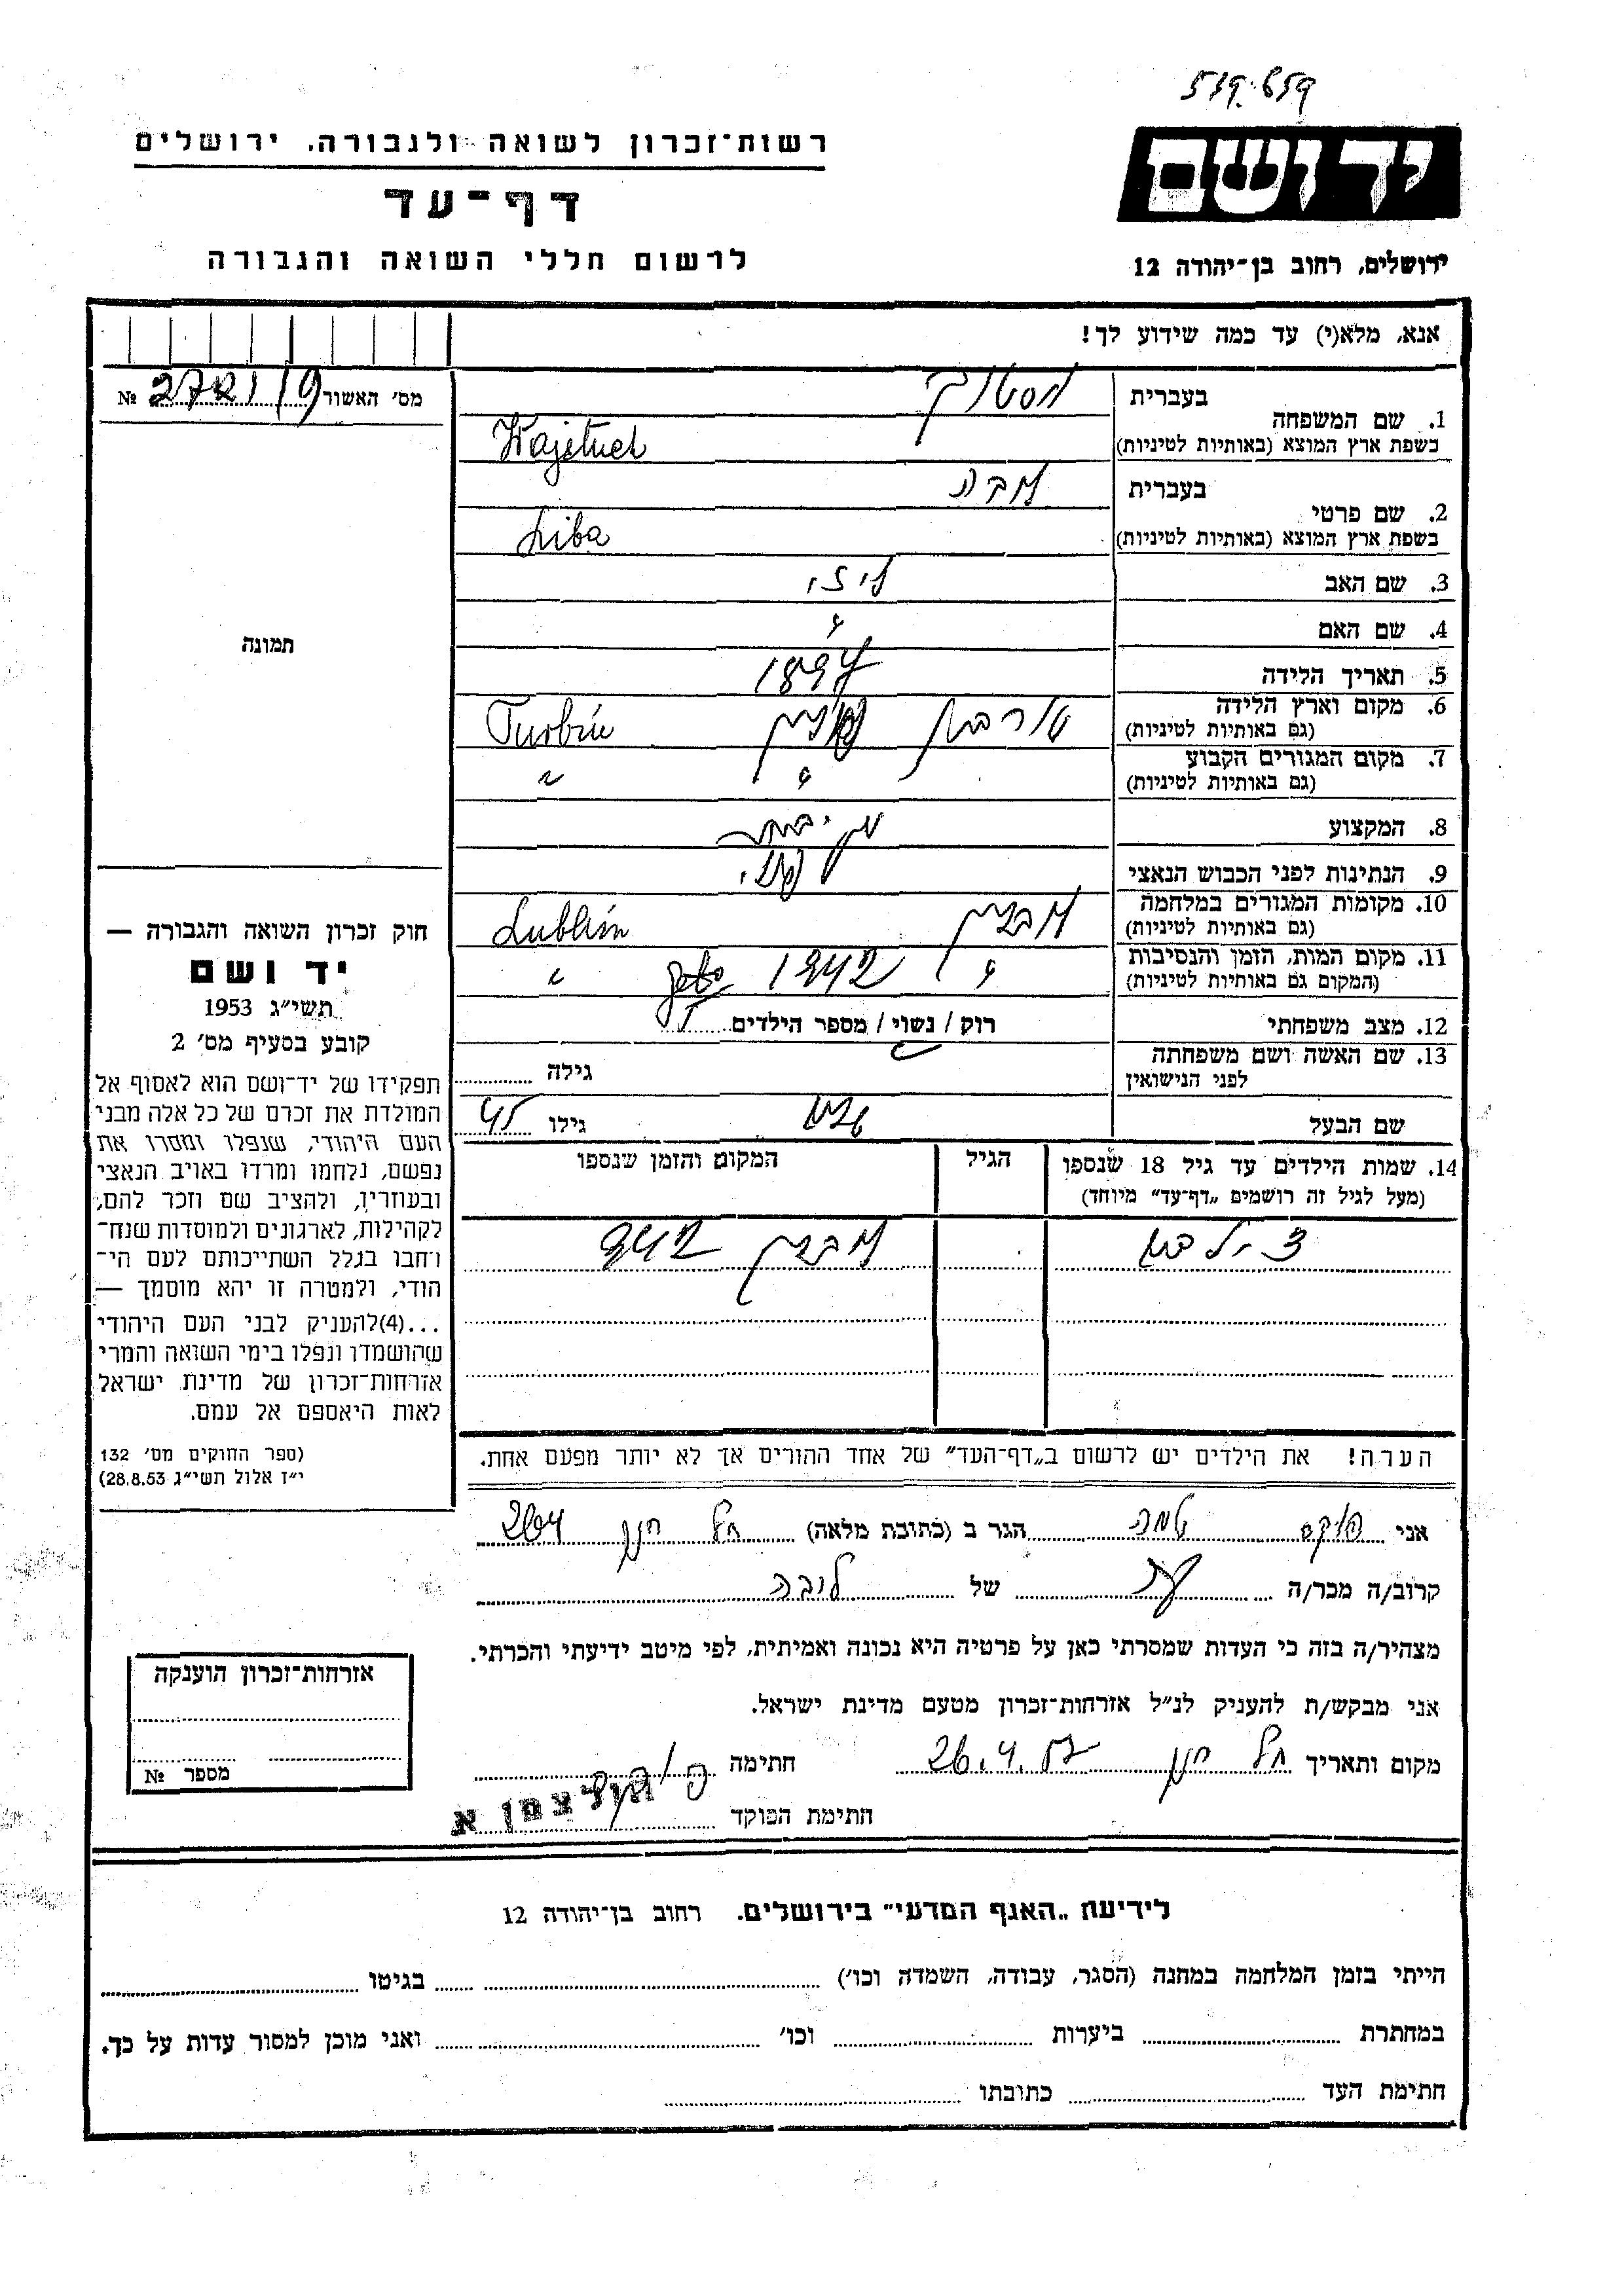 רשות־זכרון לשואה ולגבורה, ירושלים
יד ושם
דף־עד
לרשום חללי השואה והגבורה
ירושלים, רחוב בן־יהודה 12
אנא, מלא(י) עד כמה שידוע לך!
מס׳ האשור №
בעברית
1. שם המשפחה
בשפת ארץ המוצא (באותיות לטיניות)
בעברית
2. שם פרטי
בשפת ארץ המוצא (באותיות לטיניות) Liba
3. שם האב
4. שם האם
5. תאריך הלידה 1897
6. מקום וארץ הלידה
(גם באותיות לטיניות) טורבין פולין Turbin
7. מקום המגורים הקבוע
(גם באותיות לטיניות) " "
8. המקצוע
9. הנתינות לפני הכבוש הנאצי
10. מקומות המגורים במלחמה
(גם באותיות לטיניות) לובלין Lublin
11. מקום המות, הזמן והנסיבות
(המקום גם באותיות לטיניות) " 1942 "
12. מצב משפחתי רווק / נשוי / מספר הילדים
13. שם האשה ושם משפחתה
לפני הנישואין גילה
שם הבעל גילו 45
14. שמות הילדים עד גיל 18 שנספו
(מעל לגיל זה רושמים „דף־עד” מיוחד)
הגיל
המקום והזמן שנספו
לובלין 942
הערה! את הילדים יש לרשום ב„דף־העד” של אחד ההורים אך לא יותר מפעם אחת.
אני הגר ב (כתובת מלאה) תל חנן
קרוב/ה מכר/ה של ליבה
מצהיר/ה בזה כי העדות שמסרתי כאן על פרטיה היא נכונה ואמיתית, לפי מיטב ידיעתי והכרתי.
אני מבקש/ת להעניק לנ״ל אזרחות־זכרון מטעם מדינת ישראל.
מקום ותאריך תל חנן 26.4.57 חתימה
חתימת הפוקד הולצמן א
תמונה
חוק זכרון השואה והגבורה —
יד ושם
תשי״ג 1953
קובע בסעיף מס׳ 2
תפקידו של יד־ושם הוא לאסוף אל
המולדת את זכרם של כל אלה מבני
העם היהודי, שנפלו ומסרו את
נפשם, נלחמו ומרדו באויב הנאצי
ובעוזריו, ולהציב שם וזכר להם,
לקהילות, לארגונים ולמוסדות שנח־
רבו בגלל השתייכותם לעם הי־
הודי, ולמטרה זו יהא מוסמך —
...(4)להעניק לבני העם היהודי
שהושמדו ונפלו בימי השואה והמרי
אזרחות־זכרון של מדינת ישראל
לאות היאספם אל עמם.
(ספר החוקים מס׳ 132
י״ז אלול תשי״ג 28.8.53)
אזרחות־זכרון הוענקה
מספר №
לידיעת „האגף המדעי” בירושלים, רחוב בן־יהודה 12
הייתי בזמן המלחמה במחנה (הסגר, עבודה, השמדה וכו׳) בגיטו
במחתרת ביערות וכו׳ ואני מוכן למסור עדות על כך.
חתימת העד כתובתו